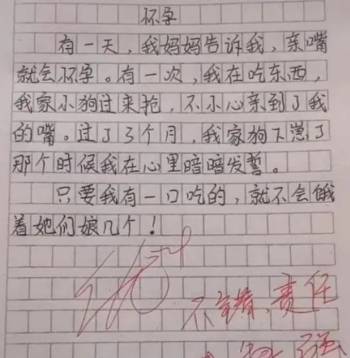 怀孕
有一天，我妈妈告诉我，亲嘴
就会怀孕。有一次，我在吃东西，
我家小狗过来抢，不小心亲到了我
的嘴。过了3个月，我家狗下崽了
那个时候我在心里暗暗发誓。
只要我有一口吃的，就不会饿
着她们娘几个！
不错，责任
强